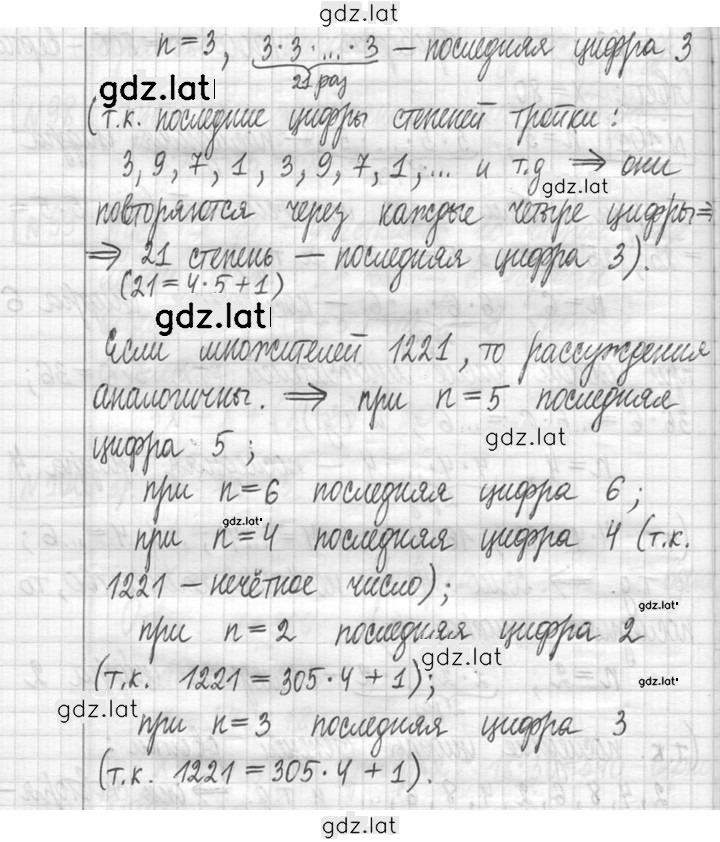 gdz.lat
n=3, 3·3·...·3 — последняя цифра 3
21 раз
gdz.lat
(т.к. последние цифры степеней тройки:
3, 9, 7, 1, 3, 9, 7, 1, ... и т.д ⇒ они
gdz.lat
повторяются через каждые четыре цифры ⇒
⇒ 21 степень — последняя цифра 3).
(21=4·5+1)
gdz.lat
Если множителей 1221, то рассуждения
аналогичны. ⇒ при n=5 последняя
gdz.lat
цифра 5;
при n=6 последняя цифра 6;
gdz.lat
при n=4 последняя цифра 4 (т.к.
1221 — нечётное число);
gdz.lat
при n=2 последняя цифра 2
gdz.lat
(т.к. 1221=305·4+1);
gdz.lat
gdz.lat
при n=3 последняя цифра 3
(т.к. 1221=305·4+1).
gdz.lat